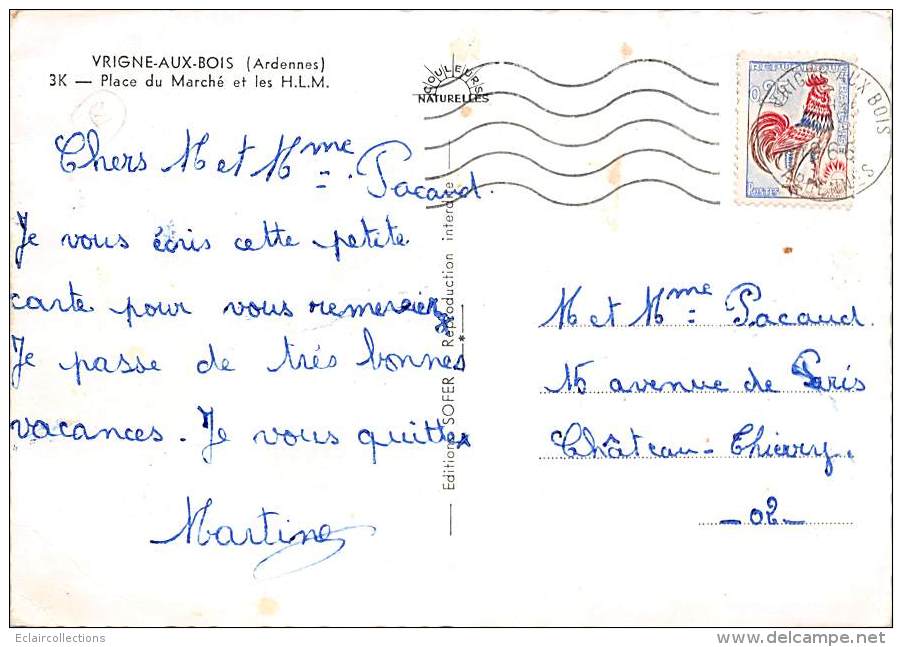 VRIGNE-AUX-BOIS (Ardennes)
3K — Place du Marché et les H.L.M.
COULEURS
NATURELLES
Chers M et Mme
Pacaud.
Je vous écris cette petite
carte pour vous remercier
Je passe de très bonnes
vacances. Je vous quitte
Martine
Editions SOFER — Reproduction interdite
VRIGNE AUX BOIS
ARDENNES
POSTES
M et Mme Pacaud.
15 avenue de Paris
Château-Thierry.
-02-
Eclaircollections
delcampe.net